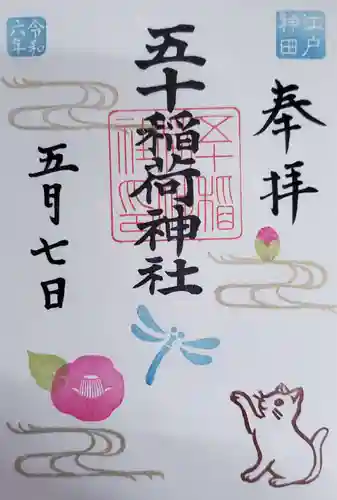 奉拝
江戸
神田
五十稲荷神社
令和
六年
五月七日